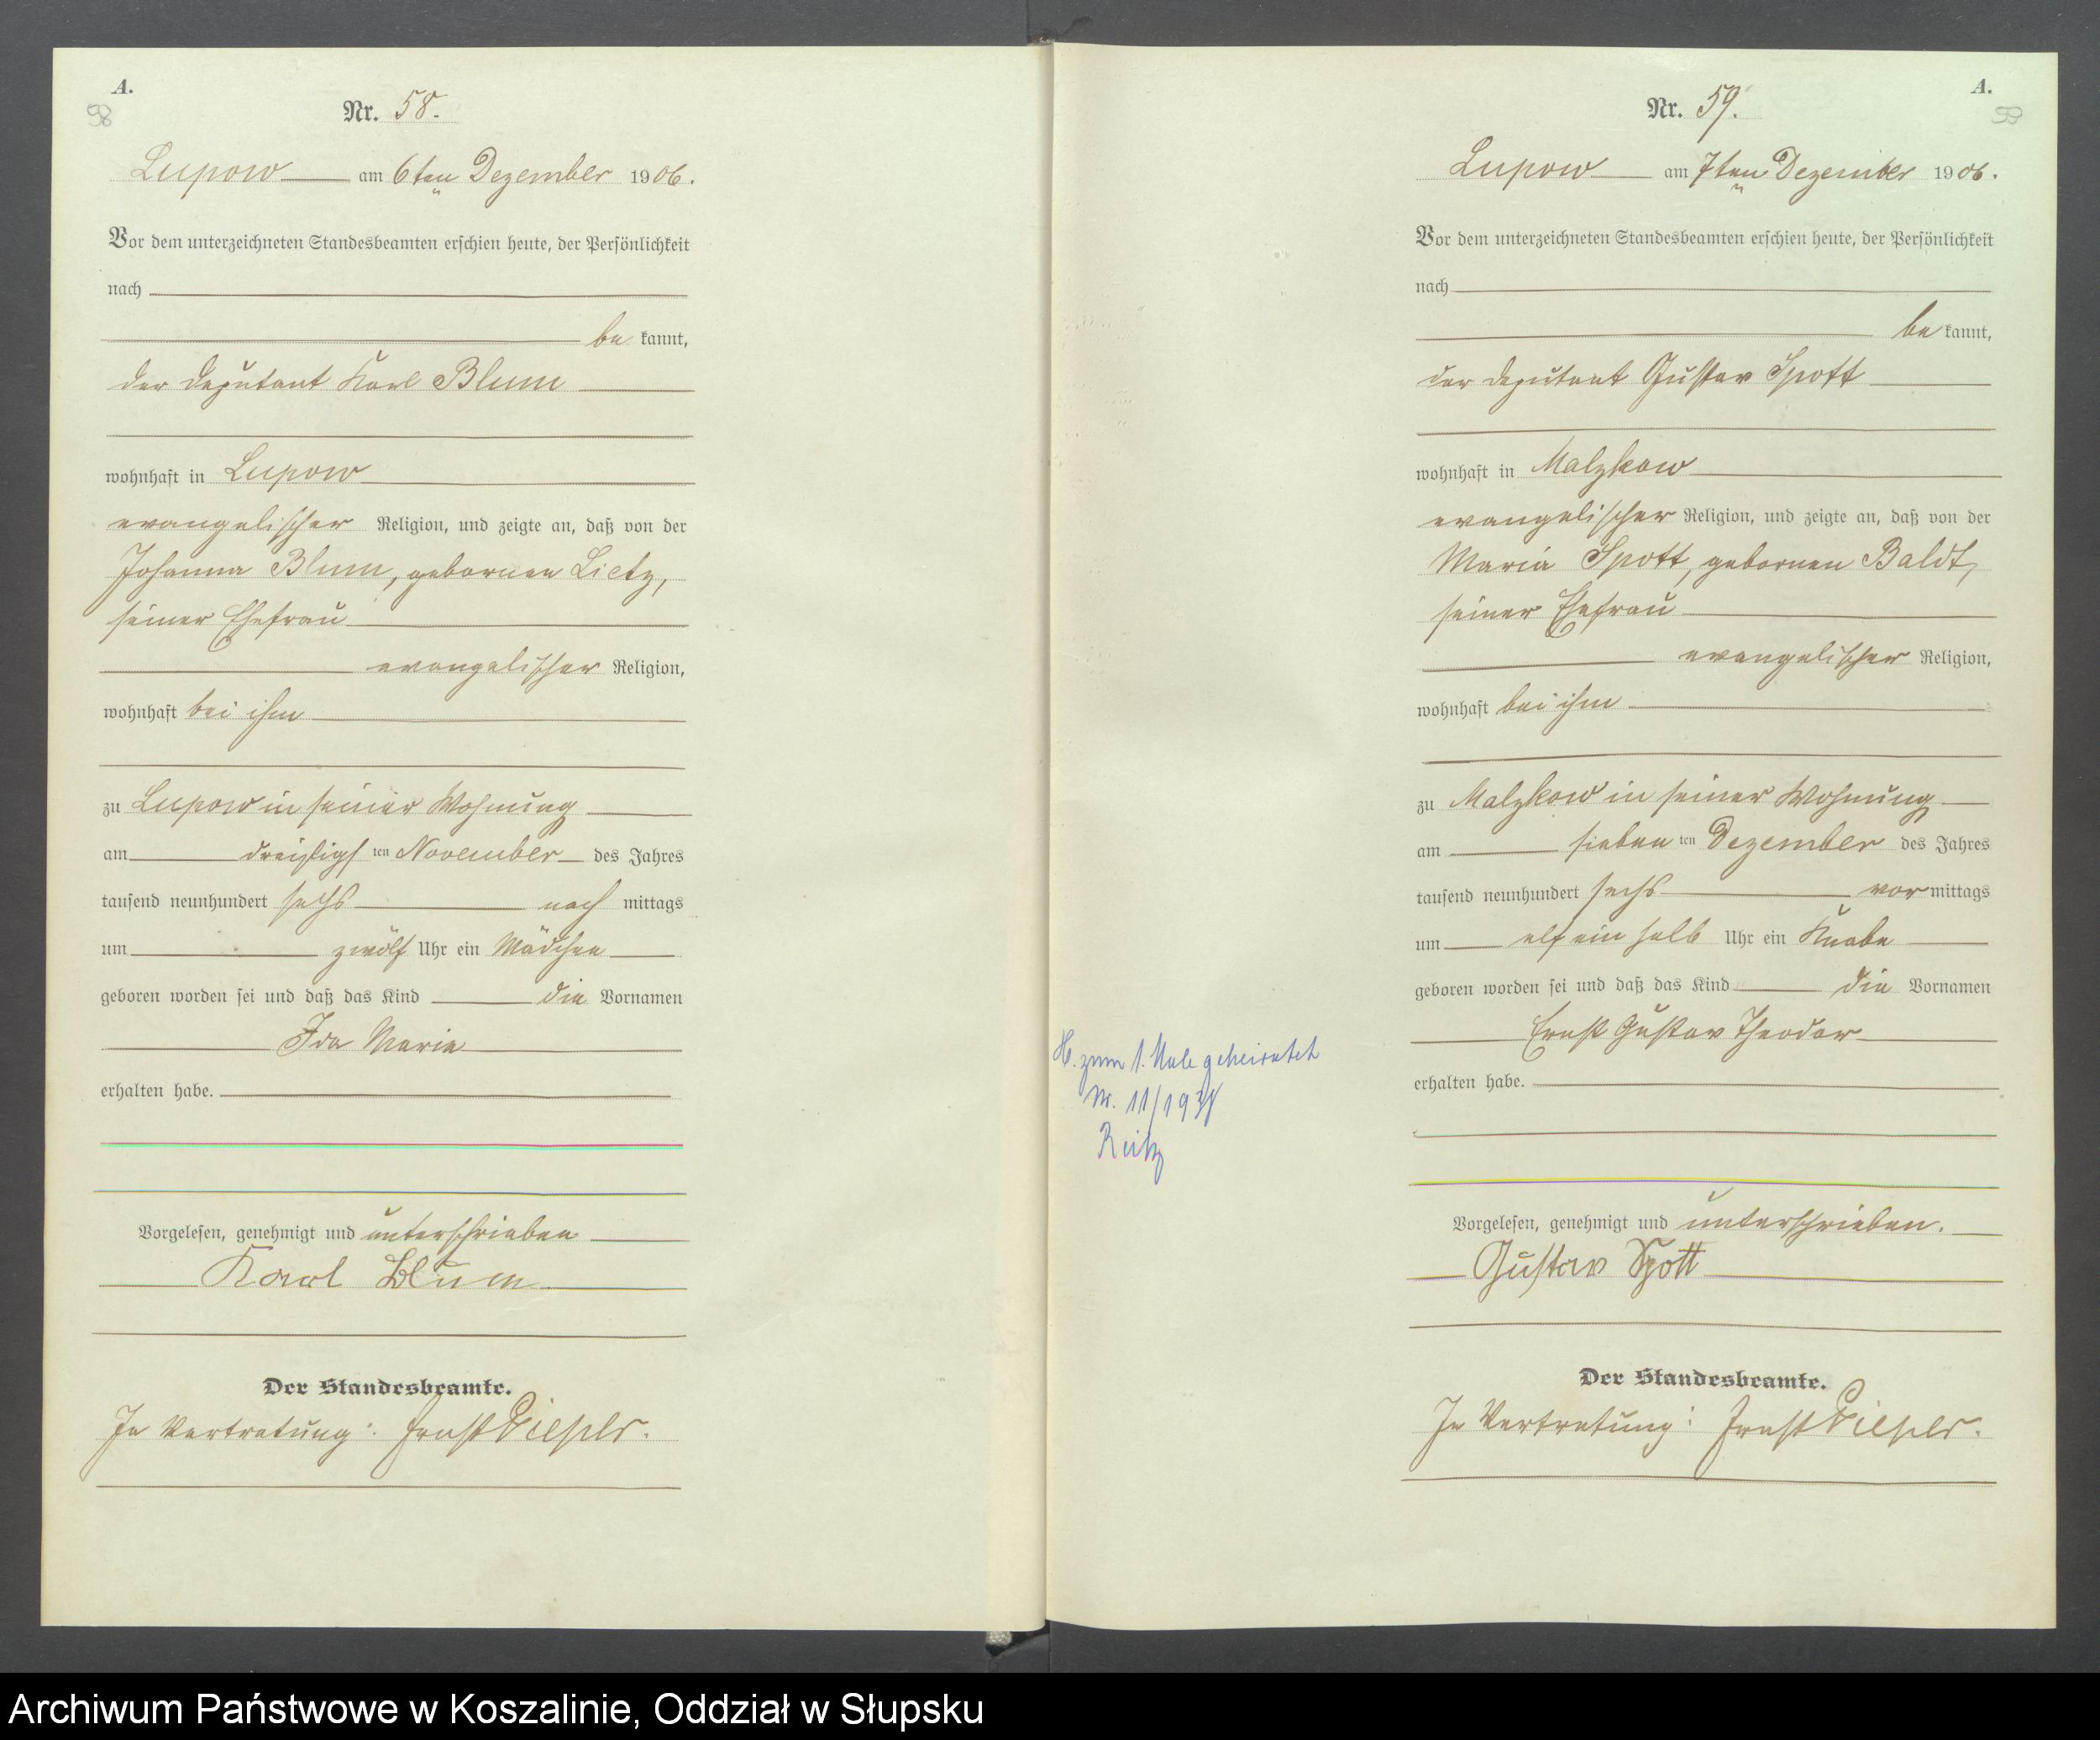 A.
58
Nr. 58.
Lupow am 6ten Dezember 1906.
Vor dem unterzeichneten Standesbeamten erschien heute, der Persönlichkeit
nach
be kannt,
der Deputant Karl Blum
wohnhaft in Lupow
evangelischer Religion, und zeigte an, daß von der
Johanna Blum, gebornen Lietz,
seiner Ehefrau
evangelischer Religion,
wohnhaft bei ihm
zu Lupow in seiner Wohnung
am dreizigst ten November des Jahres
tausend neunhundert sechs nach mittags
um zwölf Uhr ein Mädchen
geboren worden sei und daß das Kind die Vornamen
Ida Maria
erhalten habe.
Vorgelesen, genehmigt und unterschrieben
Karl Blum
Der Standesbeamte.
In Vertretung: Ernst
A.
59
Nr. 59.
Lupow am 7ten Dezember 1906.
Vor dem unterzeichneten Standesbeamten erschien heute, der Persönlichkeit
nach
be kannt,
der Deputant Gustav Spott
wohnhaft in Malzkow
evangelischer Religion, und zeigte an, daß von der
Maria Spott, gebornen Baldt,
seiner Ehefrau
evangelischer Religion,
wohnhaft bei ihm
zu Malzkow in seiner Wohnung
am sieben ten Dezember des Jahres
tausend neunhundert sechs vor mittags
um elf ein halb Uhr ein Knabe
geboren worden sei und daß das Kind die Vornamen
Ernst Gustav Theodor
erhalten habe.
H. zum 1. Male geheiratet
Nr. 11/193
Vorgelesen, genehmigt und unterschrieben.
Gustav Spott
Der Standesbeamte.
In Vertretung: Ernst
Archiwum Państwowe w Koszalinie, Oddział w Słupsku